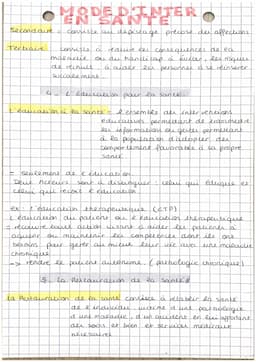 MODE D'INTER
EN SANTE
Secondaire = consiste au dépistage précoce des affections
Tertiaire : consiste à réduire les conséquences de la
maladie ou du handicap à éviter, les risques
de rechute, à aider les personnes à se réinsérer
socialement.
4. L'éducation pour la santé.
L'éducation à la santé = ensemble des interventions
éducatives permettant de transmettre
les informations ou gestes permettant
à la population d'adopter des
comportements favorables à sa propre
santé
= seulement de l'éducation.
Deux acteurs sont à distinguer : celui qui éduque et
celui qui reçoit l'éducation
ex : l'éducation thérapeutique (ETP)
L'éducation du patient ou l'éducation thérapeutique
= recouvre toute action visant à aider les patients à
acquérir ou maintenir les compétences dont ils ont
besoin pour gérer au mieux leur vie avec une maladie
chronique.
-> rendre le patient autonome. (pathologie chronique)
5. La Restauration de la santé
La Restauration de la santé consiste à rétablir la santé
de l'individu victime d'une pathologie
d'une maladie, d'un accident en lui apportant
des soins et bien et services médicaux
nécessaires